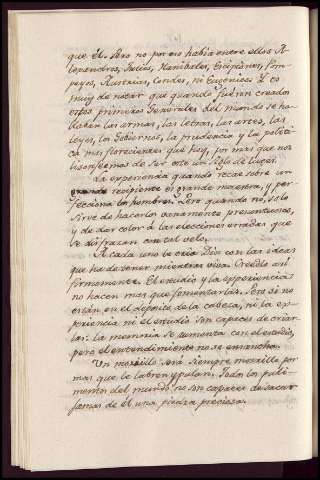 que él. Pero no por eso havia entre ellos A-
lexandros, Julios, Hanibales, Escipiones, Pom-
peyos, Austrias, Condes, ni Eugenios. Y es
muy de notar que quando fueron creados
estos primeros Generales del mundo se ha-
llaban las armas, las letras, las artes, las
leyes, los Gobiernos, la prudencia y la politi-
ca mas florecientes que hoy, por mas que nos
lisonjeemos de ser este un siglo de luces.
La experiencia quando recae sobre un
grande recipiente es grande maestra, y per-
fecciona los hombres. Pero quando no, solo
sirve de hacerlos vanamente presuntuosos,
y de dar color à las elecciones erradas que
se disfrazan con tal velo.
A cada uno le cria Dios con las ideas
que ha de tener mientras viva. Creedlo asi
firmemente. El estudio y la experiencia
no hacen mas que fomentarlas. Pero si no
están en el deposito de la cabeza, ni la ex-
periencia ni el estudio son capaces de criar-
las: la memoria se aumenta con el estudio,
pero el entendimiento no se ensancha.
Un morrillo será siempre morrillo por
mas que le labren y pulan. Todos los puli-
mentos del mundo no son capaces de sacar
jamas de él una piedra preciosa.